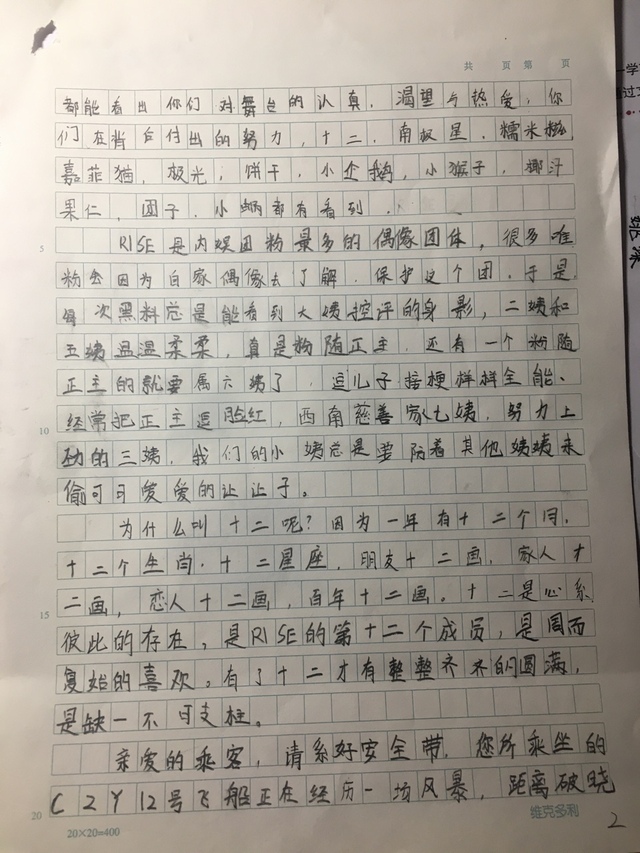 共 页 第 页
都能看出你们对舞台的认真，渴望与热爱，你
们在背后付出的努力，十二，南极星，糯米糍
嘉菲猫，极光，饼干，小企鹅，小猴子，椰汁
果仁，圆子，小蛹都有看到．
5 RISE是内娱团粉最多的偶像团体，很多唯
粉会因为自家偶像去了解，保护这个团．于是
每次黑料总是能看到大姨控评的身影，二姨和
五姨温温柔柔，真是粉随正主，还有一个粉随
正主的就要属六姨了，逗儿子接梗样样全能、
10 经常把正主逗脸红，西南慈善家七姨，努力上
劲的三姨，我们的小姨总是要防着其他姨姨来
偷可可爱爱的让让子。
为什么叫十二呢？因为一年有十二个月，
十二个生肖，十二星座，朋友十二画，家人十
15 二画，恋人十二画，百年十二画。十二是心系
彼此的存在，是RISE的第十二个成员，是周而
复始的喜欢。有了十二才有整整齐齐的圆满，
是缺一不可支柱。
亲爱的乘客，请系好安全带，您所乘坐的
20 CZY12号飞船正在经历一场风暴，距离破晓
20×20=400
维克多利
2